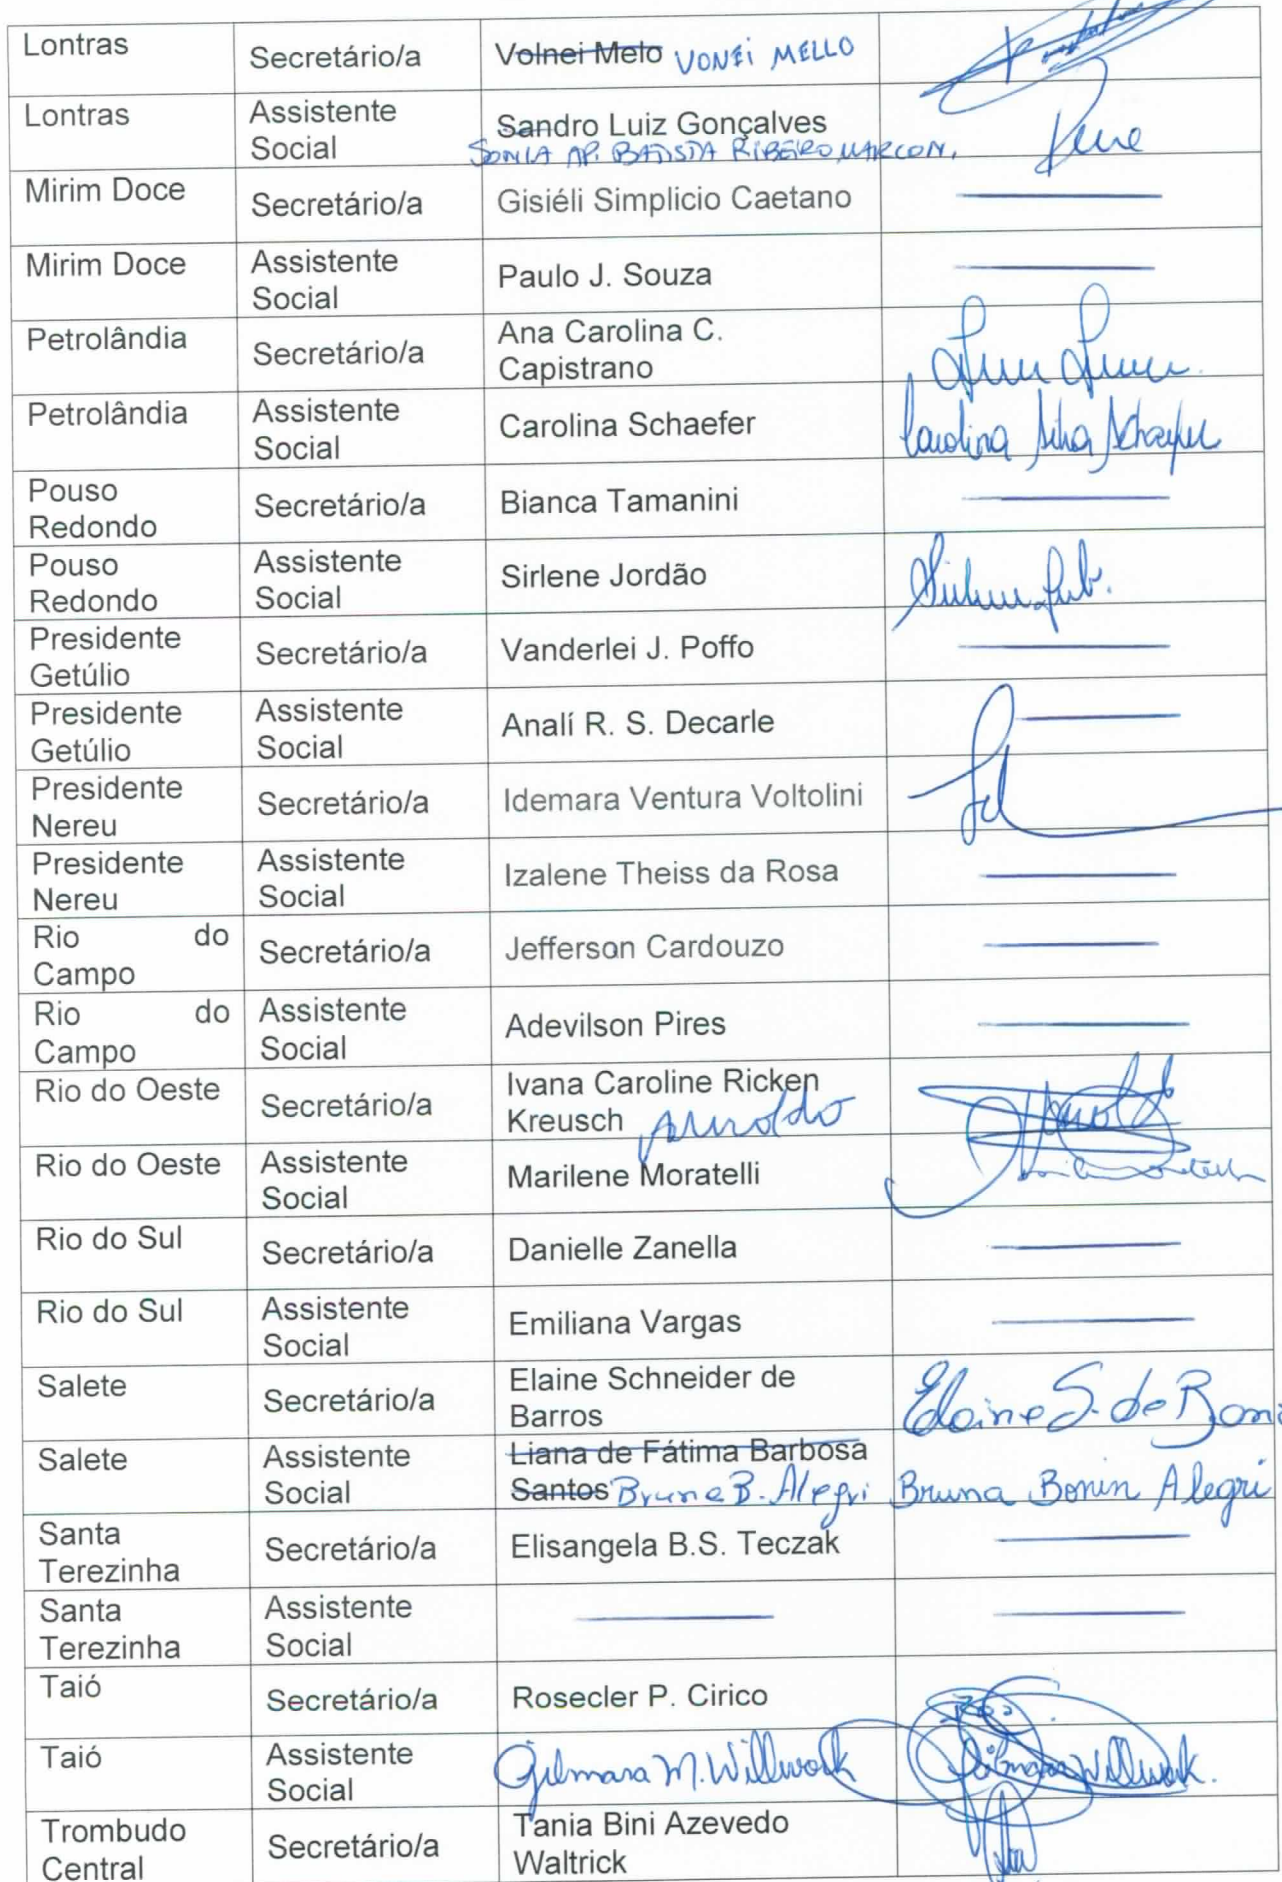 Lontras Secretário/a Volnei Melo VONEi MELLO
Lontras Assistente Social Sandro Luiz Gonçalves
SONIA AP. BATISTA RIBEIRO MARCON.
Mirim Doce Secretário/a Gisiéli Simplicio Caetano
Mirim Doce Assistente Social Paulo J. Souza
Petrolândia Secretário/a Ana Carolina C. Capistrano
Petrolândia Assistente Social Carolina Schaefer Carolina Silva Schaefer
Pouso Redondo Secretário/a Bianca Tamanini
Pouso Redondo Assistente Social Sirlene Jordão
Presidente Getúlio Secretário/a Vanderlei J. Poffo
Presidente Getúlio Assistente Social Analí R. S. Decarle
Presidente Nereu Secretário/a Idemara Ventura Voltolini
Presidente Nereu Assistente Social Izalene Theiss da Rosa
Rio do Campo Secretário/a Jefferson Cardouzo
Rio do Campo Assistente Social Adevilson Pires
Rio do Oeste Secretário/a Ivana Caroline Ricken Kreusch Arnoldo
Rio do Oeste Assistente Social Marilene Moratelli
Rio do Sul Secretário/a Danielle Zanella
Rio do Sul Assistente Social Emiliana Vargas
Salete Secretário/a Elaine Schneider de Barros Elaine S. de
Salete Assistente Social Liana de Fátima Barbosa Santos Bruna B. Alegri Bruna Bonin Alegri
Santa Terezinha Secretário/a Elisangela B.S. Teczak
Santa Terezinha Assistente Social
Taió Secretário/a Rosecler P. Cirico
Taió Assistente Social Gilmara M. Willwock Gilmara Willwock.
Trombudo Central Secretário/a Tania Bini Azevedo Waltrick